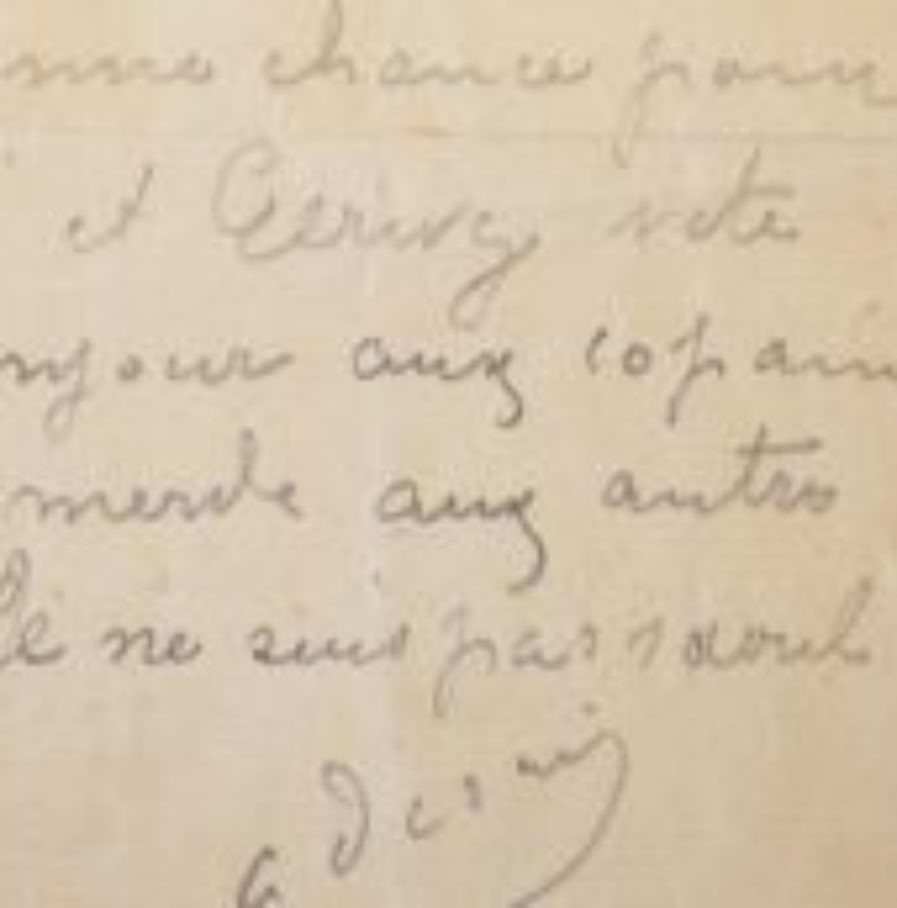 nne chance pour
et Ecrivez vite
njour aux copain
merde aux autres
Je ne suis pas saoul